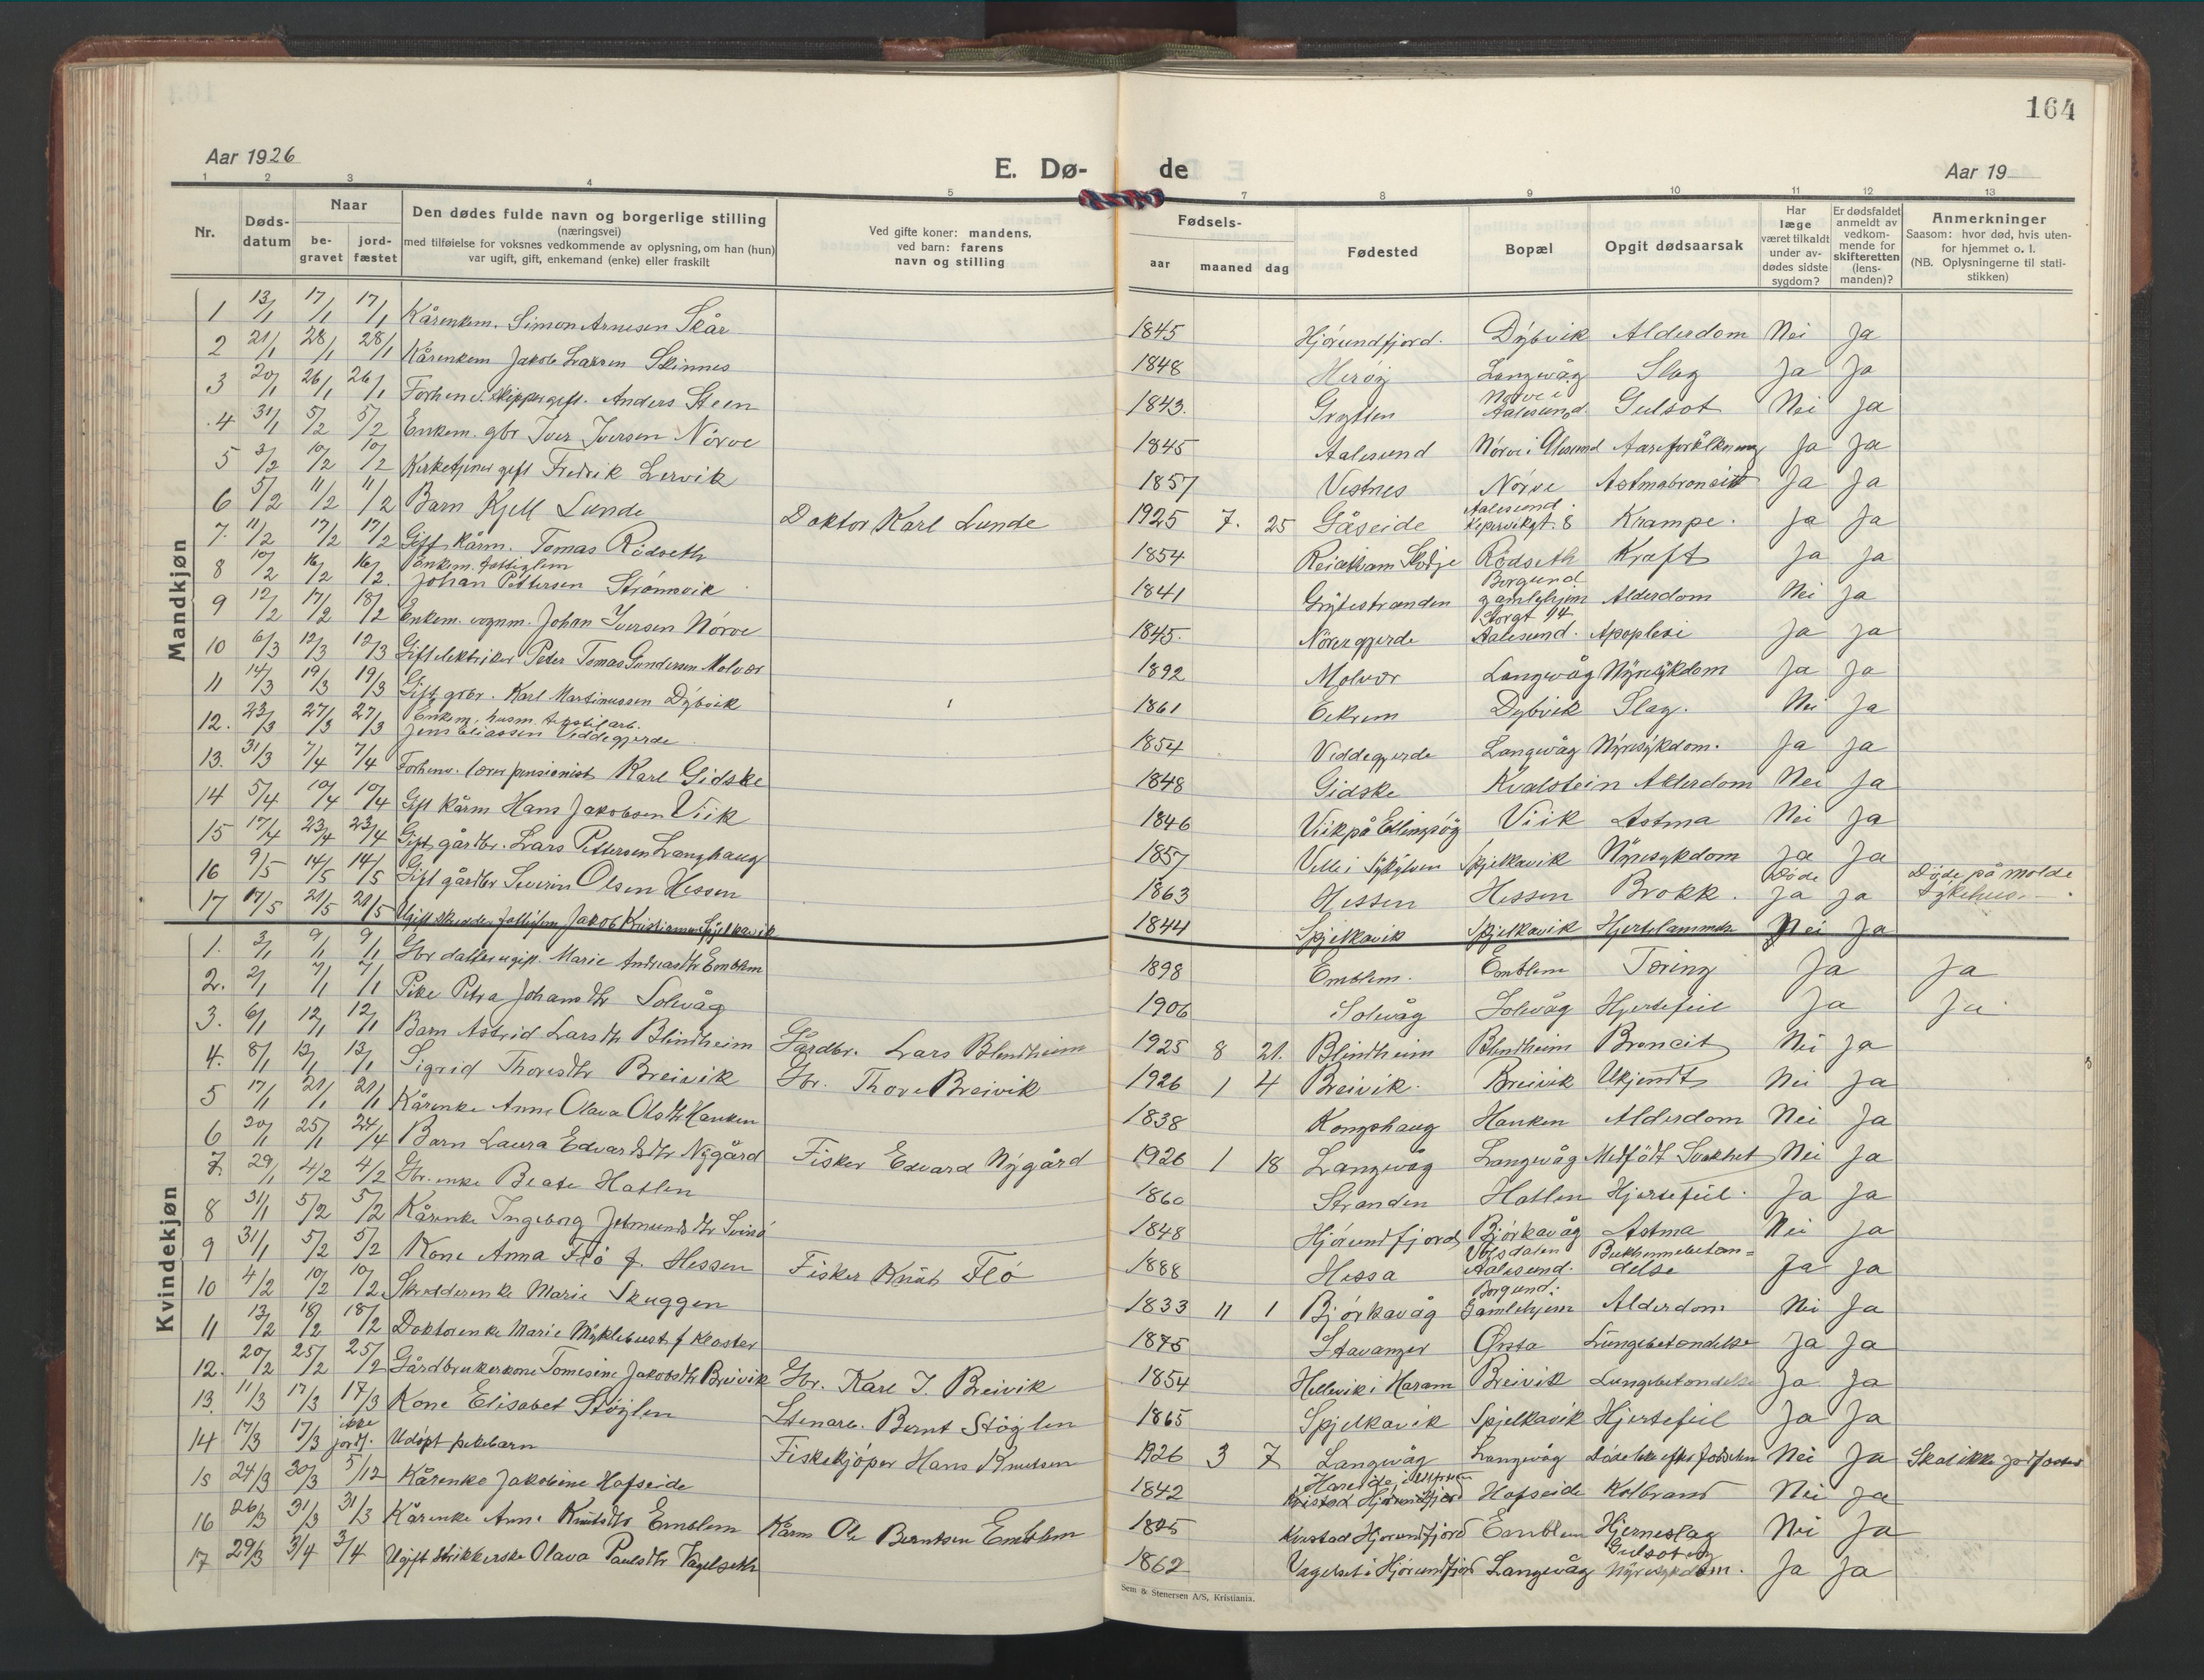 164
Aar 1926
E. Dø-
de
Aar 19
1 2 3 4 5 7 8 9 10 11 12 13
Nr.
Døds-
datum
Naar
be-
gravet
jord-
fæstet
Den dødes fulde navn og borgerlige stilling
(næringsvei)
med tilføielse for voksnes vedkommende av oplysning, om han (hun)
var ugift, gift, enkemand (enke) eller fraskilt
Ved gifte koner: mandens,
ved barn: farens
navn og stilling
Fødsels-
aar maaned dag
Fødested
Bopæl
Opgit dødsaarsak
Har
læge
været tilkaldt
under av-
dødes sidste
sygdom?
Er dødsfaldet
anmeldt av
vedkom-
mende for
skifteretten
(lens-
manden)?
Anmerkninger
Saasom: hvor død, hvis uten-
for hjemmet o. l.
(NB. Oplysningerne til stati-
stikken)
Mandkjøn
1 13/1 17/1 17/1 Kårenkem. Simon Arnesen Skår 1845 Hjørundfjord. Dybvik Alderdom Nei Ja
2 21/1 28/1 28/1 Kårenkem Jakob Larsen Skinnes 1848 Herøy Langevåg Slag Ja Ja
3 20/1 26/1 26/1 Forhenv. skipper gift. Anders Steen 1843. Grytten Nørve i Aalesund. Gulsot Nei Ja
4 31/1 5/2 5/2 Enkem. gbr Iver Iversen Nørve 1845 Aalesund Nørve i Ålesund Aareforkalkning Ja Ja
5 3/2 10/2 10/2 Kirketjener gift Fredrik Lervik 1857 Vestnes Nørve Astmabroncit Ja Ja
6 5/2 11/2 11/2 Barn Kjell Lunde Doktor Karl Lunde 1925 7. 25 Gåseide Aalesund. Keiservikgt. 8 Krampe. Ja Ja
7. 11/2 17/2 17/2 Gift kårm. Tomas Rødseth 1854 Skodje Rødseth Kræft Ja Ja
8 10/2 16/2 16/2. Enkem. fattiglem Johan Pettersen Strømsvik 1841 Grytestranden Borgund gamlehjem Alderdom Nei Ja
9 12/2 17/2 18/2 Enkem. vognm. Johan Iversen Nørve 1845. Nørvegjerde Storgt 14 Aalesund. Apoplexi Ja Ja
10 6/3 12/3 12/3 Gift elektriker Peter Tomas Gundersen Molvær 1892 Molvær Langevåg Nyresykdom Ja Ja
11 14/3 19/3 19/3 Gift grbr. Karl Martinussen Dybvik 1861 Eekrem Dybvik Slag. Nei Ja
12. 23/3 27/3 27/3 Enkem. husm. tekstilarb. Jens Eliassen Veddegjerde 1854 Veddegjerde Langevåg Nyresykdom. Ja Ja
13. 31/3 7/4 7/4 Forhenv. lærer pensionist Karl Gidske 1848 Gidske Kvalstein Alderdom Nei Ja
14 5/4 10/4 10/4 Gift kårm Hans Jakobsen Viik 1846 Viik på Ellingsøy Viik Astma Nei Ja
15 17/4 23/4 23/4 Gift gårdbr. Lars Pettersen Langhaug 1857 Velle i Sykylven Spjelkavik Nyresykdom Ja Ja
16 9/5 14/5 14/5 Gift gårdbr Severin Olsen Hessen 1863 Hessen Hessen Brokk. Ja Ja Døde på Molde Sykehus.
17 17/5 21/5 21/5 Ugift skredder fattiglem Jakob Kristiansen Spjelkavik 1844 Spjelkavik Spjelkavik Hjertelammelse Nei Ja
Kvindekjøn
1. 3/1 9/1 9/1 Gbr datter ugift. Marie Andreasdtr Emblem 1898 Emblem. Emblem Tæring Ja Ja
2. 2/1 7/1 7/1 Pike Petra Johansdtr Solevåg 1906 Solevåg Solevåg Hjertefeil Ja Ja.
3. 6/1 12/1 12/1 Barn Astrid Larsdtr Blindheim Gårdbr. Lars Blindheim 1925 8 21. Blindheim Blindheim Broncit Nei Ja
4. 8/1 13/1 13/1 Sigrid Thoresdtr Breivik Gbr. Thore Breivik 1926 1 4 Breivik. Breivik Ukjendt Nei Ja
5 17/1 21/1 21/1 Kårenke Anne Olava Olsdtr Hanken 1838 Kongshaug Hanken Alderdom Nei Ja
6 20/1 25/1 24/4 Barn Laura Edvardsdtr Nygård Fisker Edvard Nygård 1926 1 18 Langevåg Langevåg Medfødt Svakhet Nei Ja
7. 29/1 4/2 4/2 Gbr. enke Beate Hatlen 1860 Stranden Hatlen Hjertefeil. Ja Ja
8 31/1 5/2 5/2 Kårenke Ingeborg Jetmundsdtr Svinø 1848 Hjørundfjord Bjørkavåg Astma Nei Ja
9 31/1 5/2 5/2 Kone Anna Flø f. Hessen Fisker Knut Flø 1888 Hessa Volsdalen Aalesund. Bukhinnebetændelse Ja Ja
10 4/2 10/2 10/2 Skredderenke Marie Skuggen 1833 11 1 Bjørkavåg Borgund. Gamlehjem Alderdom Nei Ja
11 13/2 18/2 18/2 Doktorenke Marie Myklebust f Kloster 1875 Stavanger Ørsta Lungebetændelse Ja Ja
12. 20/2 25/2 25/2 Gårdbrukerkone Tomesine Jakobsdtr Breivik Gbr. Karl J. Breivik 1854 Hellevik i Haram Breivik Lungebetændelse Ja Ja
13. 11/3 17/3 17/3 Kone Elisabet Støylen Stenarb. Bernt Støylen 1865 Spjelkavik Spjelkavik Hjertefeil Ja Ja
14 17/3 17/3 ikke jordf. Udøpt pikebarn Fiskekjøper Hans Knutsen 1926 3 7 Langevåg Langevåg Døde like efter fødselen Nei Ja Skal ikke jordfæstes
15 24/3 30/3 5/12 Kårenke Jakobine Hofseide 1842 Hareide Hofseide Koldbrand Nei Ja
16 26/3 31/3 31/3 Kårenke Anne Knutsdtr Emblem Kårm Ole Berntsen Emblem 1825 Kvistad Hjørundfjord Emblem Hjerneslag Nei Ja
17 29/3 3/4 3/4 Ugift strikkerske Olava Paulsdtr Vagelseth 1862 Vagelset i Hjørundfjord Langevåg Gulsot og Nyresykdom. Ja Ja
Sem & Stenersen A/S, Kristiania.